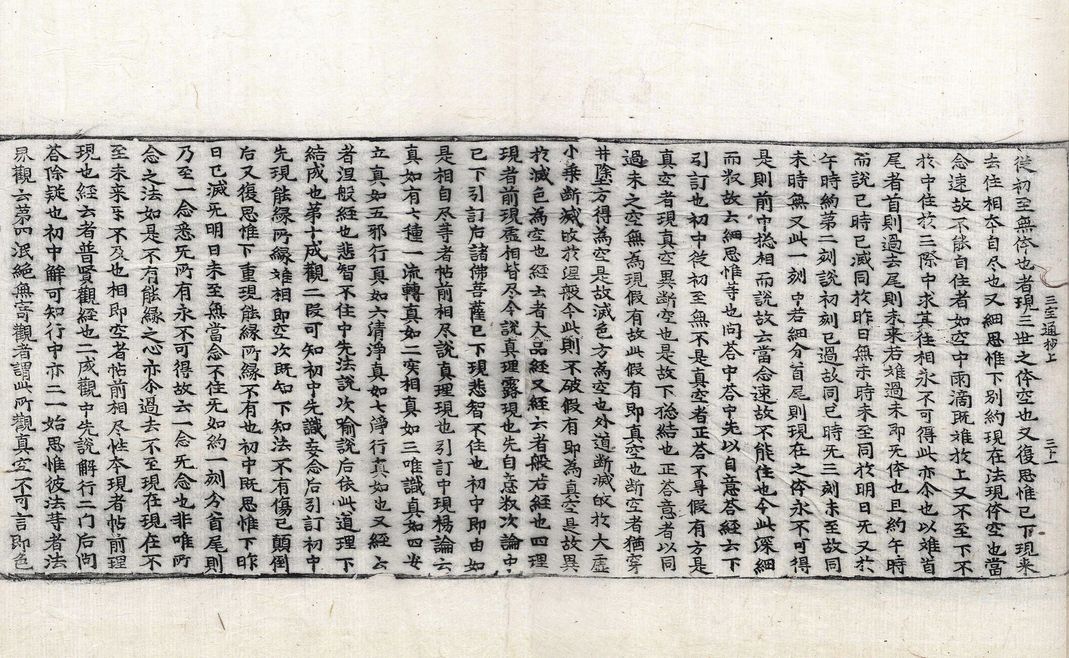 從初至無体也者現三世之体空也又復思惟已下現来
三宝通抄上 三十一
去住相夲自尽也又細思惟下別約現在法現体空也當
念速故不能自住者如空中雨滴既难於上又不至下不
於中住於三際中求其住相永不可得此亦尒也以难首
尾者首則過去尾則未来若难過未即无体也且約午時
而說巳時已滅同於昨日無未時未至同於明日无又於
午時約第二刻說初刻已過故同巳時无三刻未至故同
未時無又此一刻中若細分首尾則現在之体永不可得
是則前中捴相而說故云當念速故不能住也今此深細
而㪅故云細思惟等也向答中答中先以自意答経云下
引訂也初中從初至無不是真空者正答不㝵假有方是
真空者現真空異断空也是故下捴結也正答意者以同
過未之空無為現假有故此假有即真空也断空者猶穿
井除土方得為空是故滅色方為空也外道断滅㱕於大虛
小乗断滅㱕於涅般今此則不破假有即為真空是故異
於滅色為空也経云者大品経又経云者般若経也四理
現者前現虛相皆尽今說真理露現也先自意㪅次論中
已下引訂后諸佛菩薩已下現悲智不住也初中即由如
是相自尽等者帖前相尽說真理現也引訂中現楊論云
真如有七種一流轉真如二实相真如三唯識真如四安
立真如五邪行真如六清淨真如七淨行真如也又経云
者涅般経也悲智不住中先法說次喻說后依此道理下
結成也第十成觀二段可知初中先識妄念后引訂初中
先現能縁所縁难相即空次既知下知法不有傷已顛倒
后又復思惟下重現能縁所縁不有也初中既思惟下昨
日已滅无明日未至無當念不住无如約一刻分首尾則
乃至一念悉无所有永不可得故云一念无念也非唯所
念之法如是不有能縁之心亦尒過去不至現在現在不
至未来求不及也相即空者帖前相尽性夲現者帖前理
現也経云者普賢觀経也二成觀中先說解行二门后问
答除疑也初中解可知行中亦二一始思惟彼法等者法
界觀云第四泯絕無寄觀者謂此所觀真空不可言即色